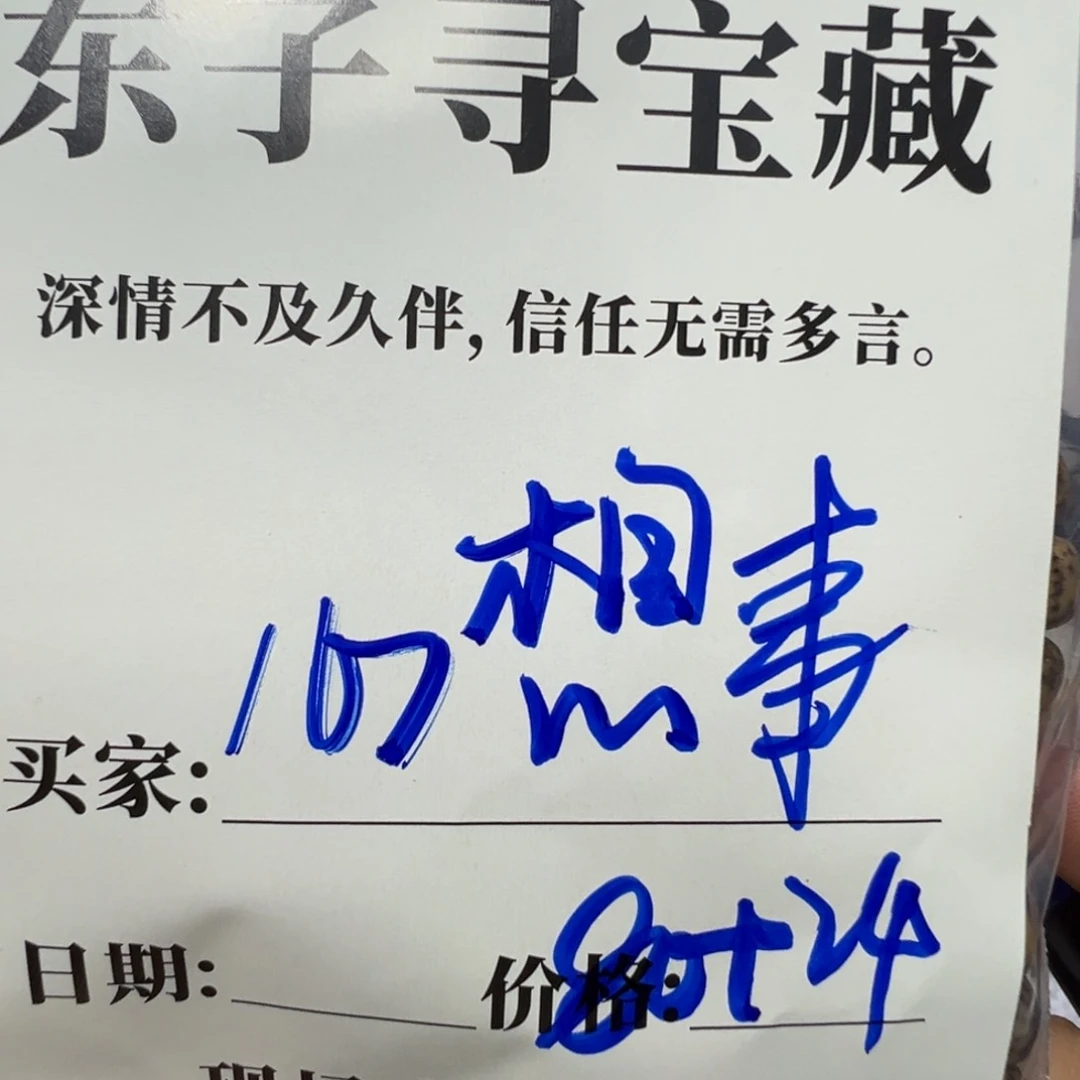 东子寻宝藏
深情不及久伴,信任无需多言。
买家: 想事
日期: 价格: 80+24